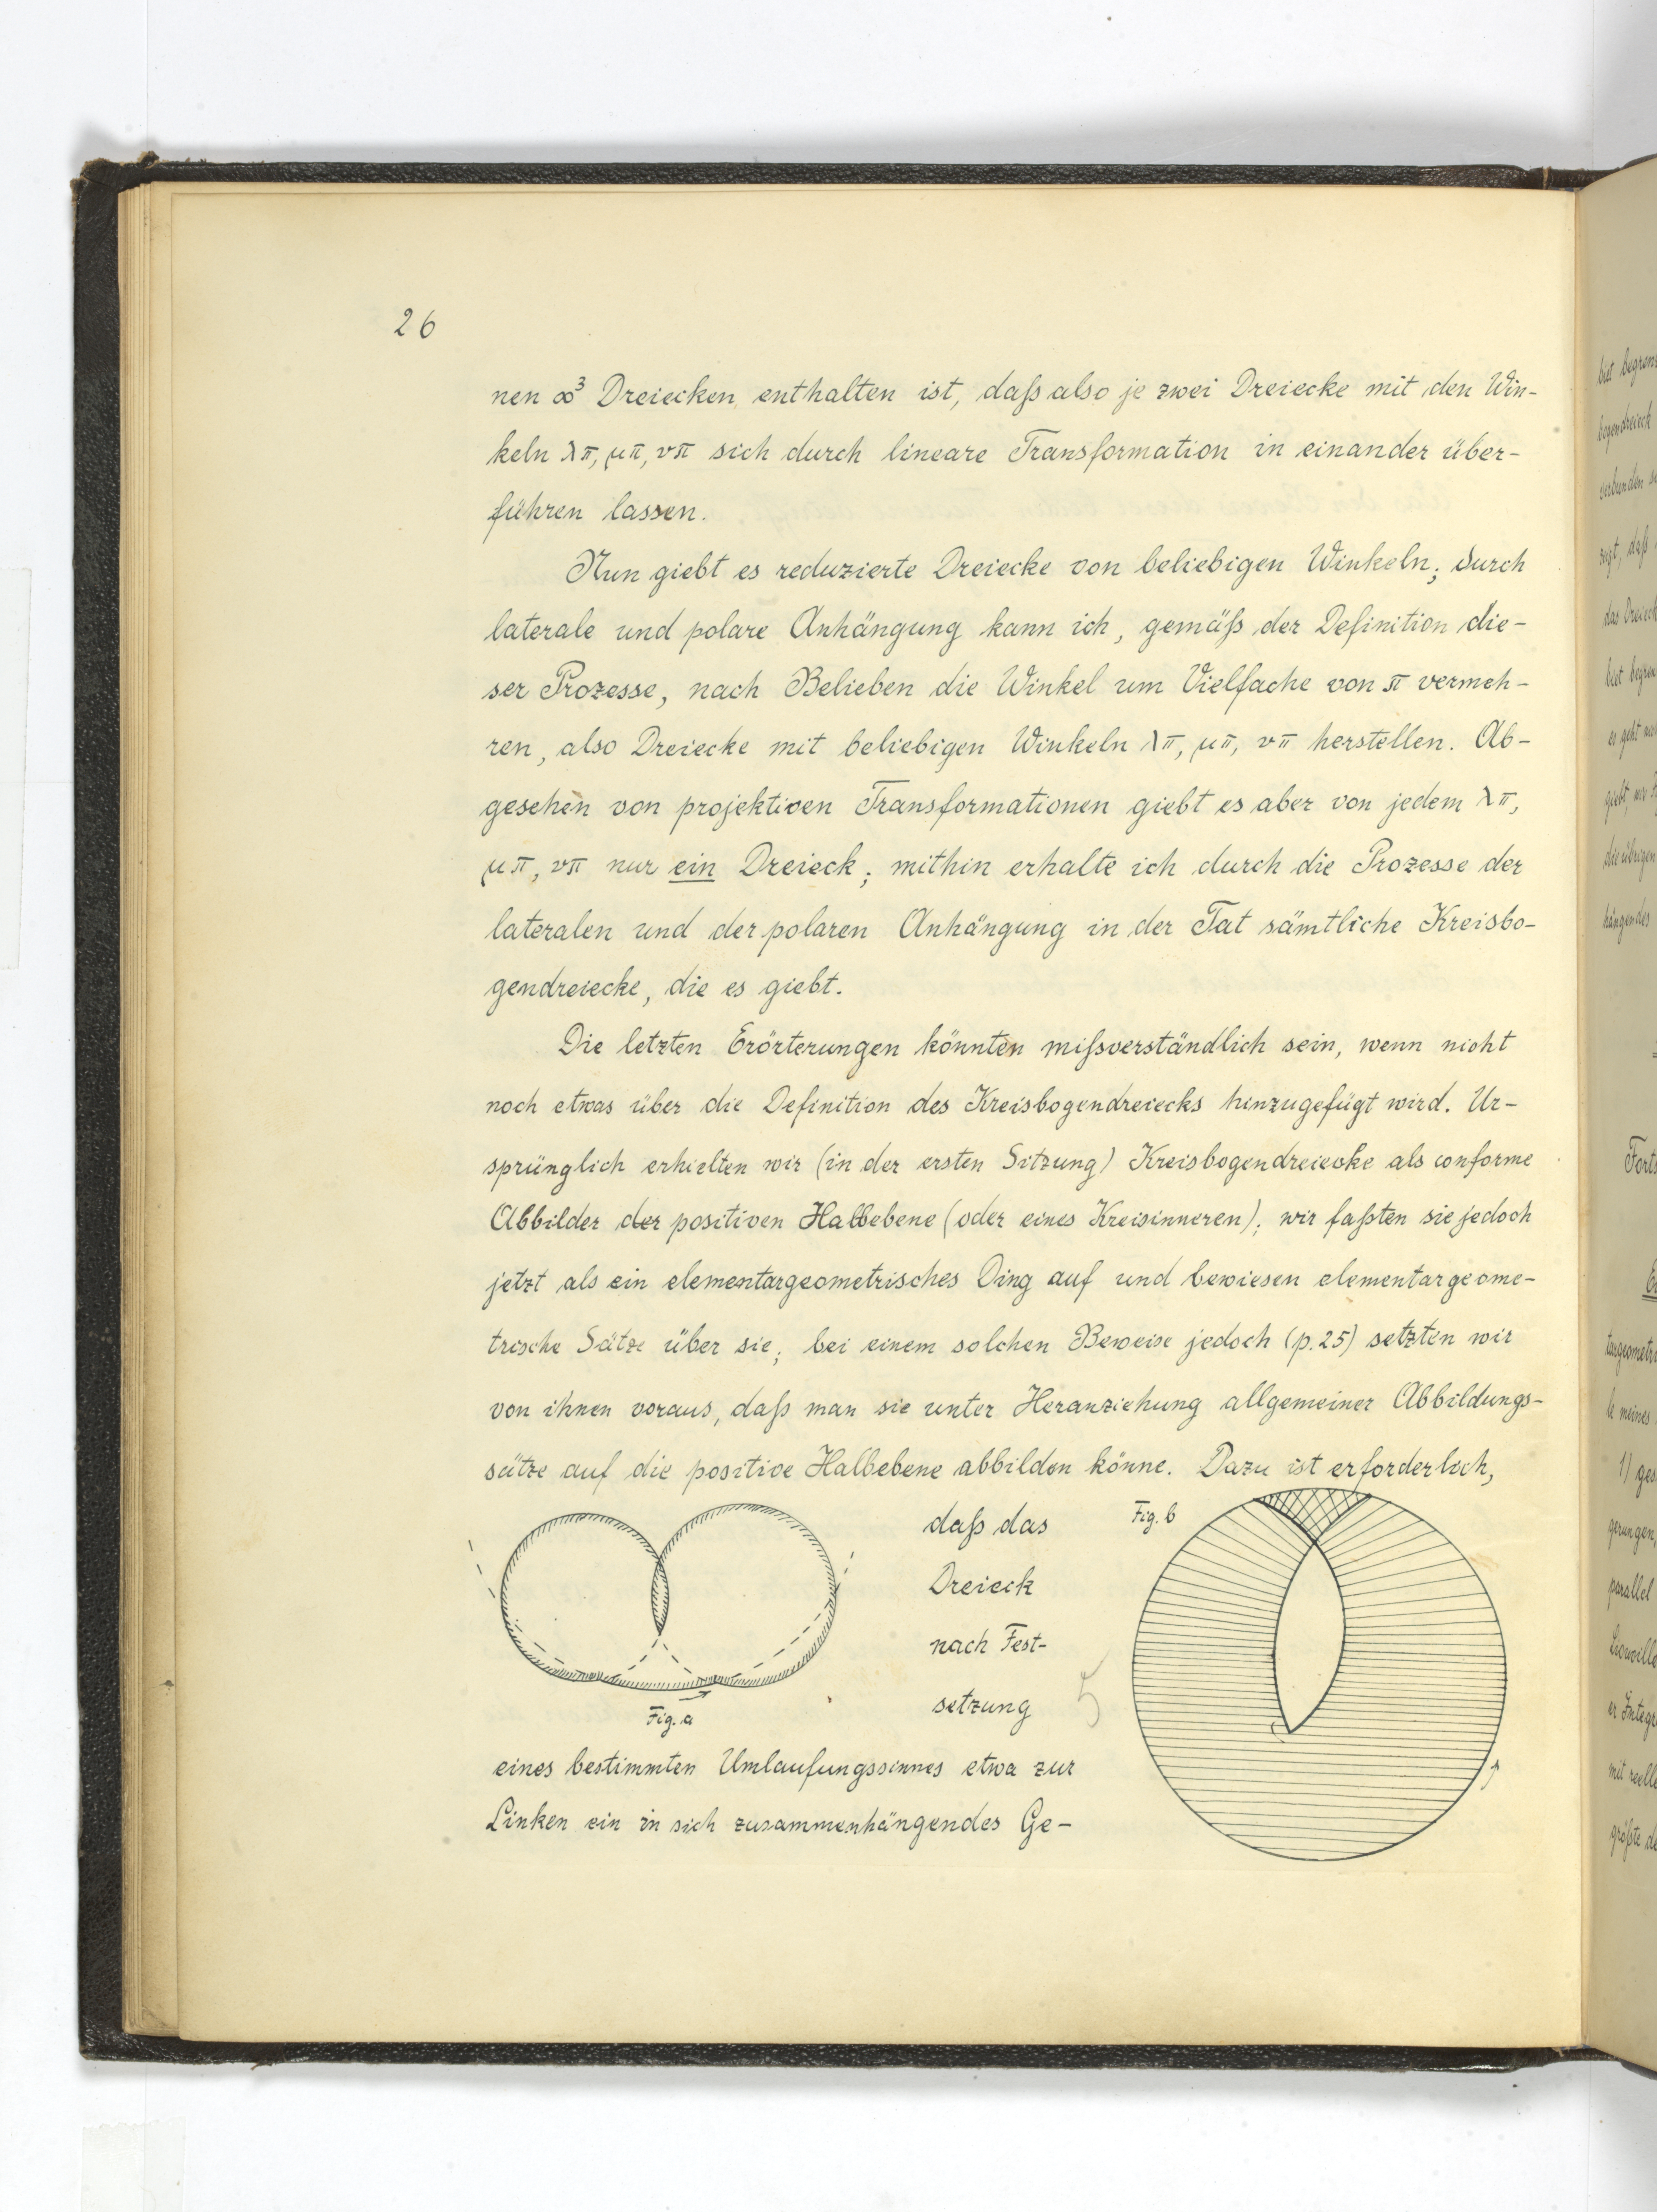 26
nen ∞³ Dreiecken enthalten ist, daß also je zwei Dreiecke mit den Win-
keln λπ, μπ, νπ sich durch lineare Transformation in einander über-
führen lassen.
Nun giebt es reduzierte Dreiecke von beliebigen Winkeln; durch
laterale und polare Anhängung kann ich, gemäß der Definition die-
ser Prozesse, nach Belieben die Winkel um Vielfache von π vermeh-
ren, also Dreiecke mit beliebigen Winkeln λπ, μπ, νπ herstellen. Ab-
gesehen von projektiven Transformationen giebt es aber von jedem λπ,
μπ, νπ nur ein Dreieck; mithin erhalte ich durch die Prozesse der
lateralen und der polaren Anhängung in der Tat sämtliche Kreisbo-
gendreiecke, die es giebt.
Die letzten Erörterungen könnten mißverständlich sein, wenn nicht
noch etwas über die Definition des Kreisbogendreiecks hinzugefügt wird. Ur-
sprünglich erhielten wir (in der ersten Sitzung) Kreisbogendreiecke als conforme
Abbilder der positiven Halbebene (oder eines Kreisinneren); wir faßten sie jedoch
jetzt als ein elementargeometrisches Ding auf und bewiesen elementargeome-
trische Sätze über sie; bei einem solchen Beweise jedoch (p. 25) setzten wir
von ihnen voraus, daß man sie unter Heranziehung allgemeiner Abbildungs-
sätze auf die positive Halbebene abbilden könne. Dazu ist erforderlich,
daß das
Dreieck
nach Fest-
setzung
eines bestimmten Umlaufungssinnes etwa zur
Linken ein in sich zusammenhängendes Ge-
Fig. a
Fig. b
5